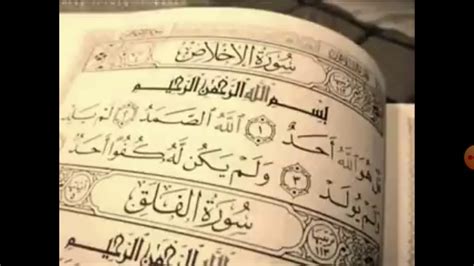 سُورَةُ الإِخْلَاصِ
بِسْمِ اللَّهِ الرَّحْمَٰنِ الرَّحِيمِ
هُوَ اللَّهُ أَحَدٌ ١ اللَّهُ الصَّمَدُ ٢ لَمْ يَلِدْ
وَلَمْ يُولَدْ ٣ وَلَمْ يَكُن لَّهُ كُفُوًا أَحَدٌ
سُورَةُ الفَلَقِ
١١٣
بِسْمِ اللَّهِ الرَّحْمَٰنِ الرَّحِيمِ